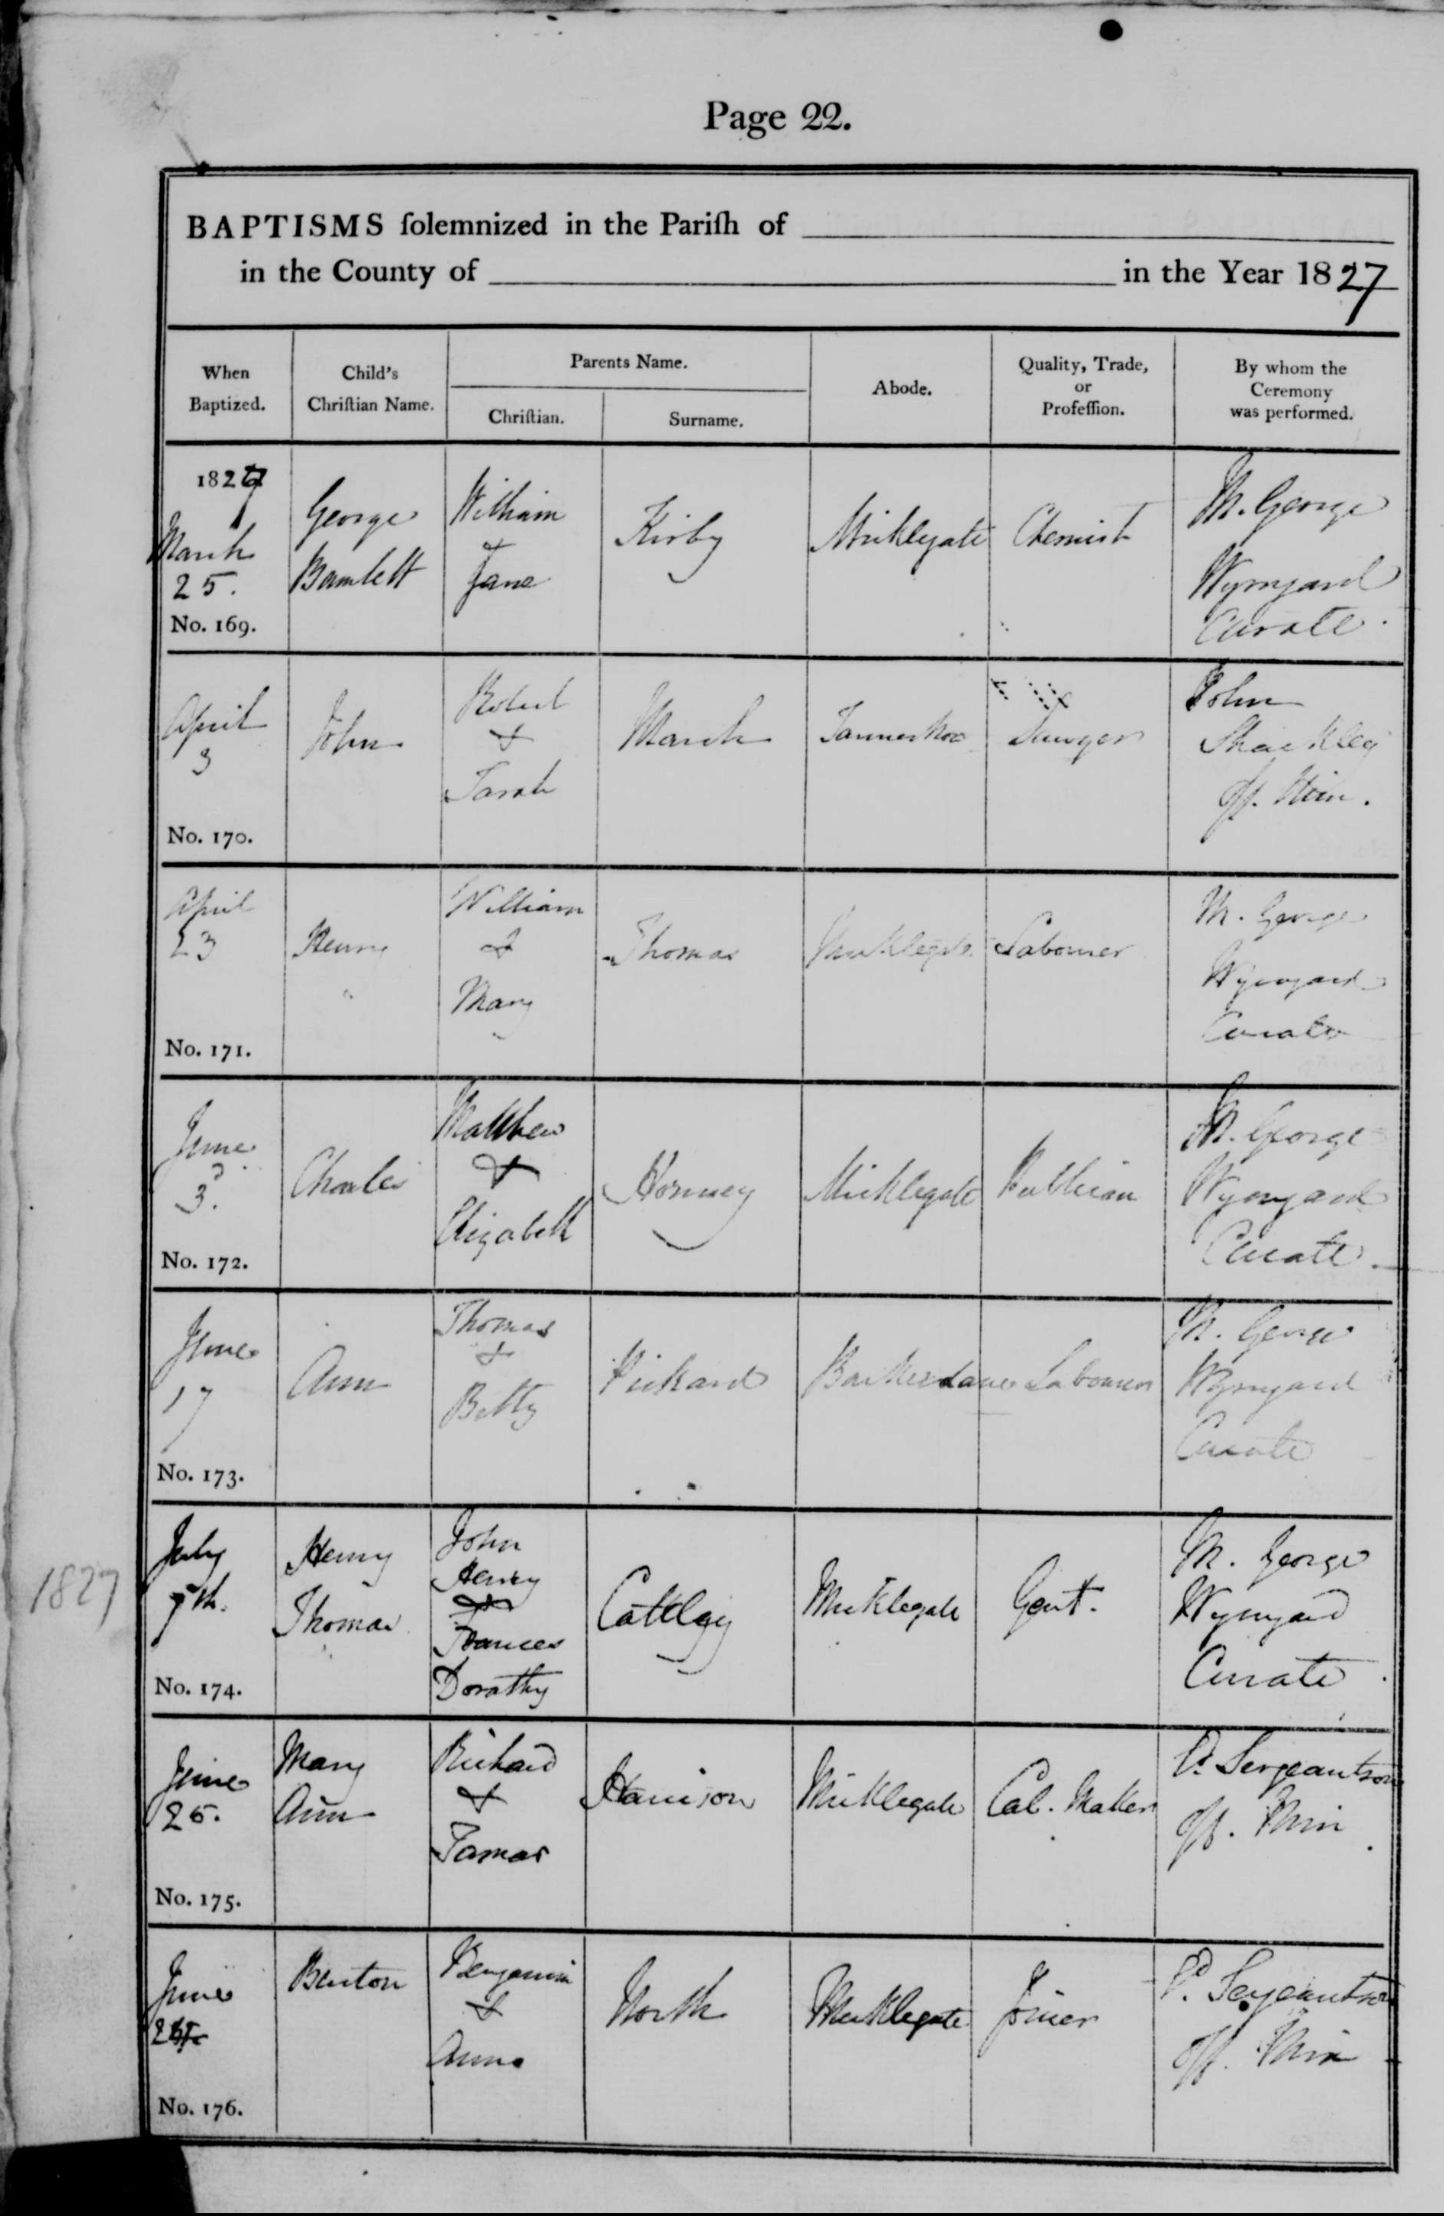 Page 22.
BAPTISMS ſolemnized in the Pariſh of
in the County of in the Year 1827
When Baptized.
Child's Chriſtian Name.
Parents Name.
Chriſtian.
Surname.
Abode.
Quality, Trade, or Profeſſion.
By whom the Ceremony was performed.
1827
March
25.
No. 169.
George
Bamlett
William
&
Jane
Kirby
Micklegate
Chemist
M. George
Wynyard
Curate
April
3
No. 170.
John
Robert
&
Sarah
March
Tanner Row
Sawyer
John
Shackley
Off. Min.
April
23
No. 171.
Henry
William
&
Mary
Thomas
Micklegate
Labourer
M. George
Wynyard
Curate
June
3.
No. 172.
Charles
Matthew
&
Elizabeth
Hornsey
Micklegate
Publican
M. George
Wynyard
Curate
June
17
No. 173.
Ann
Thomas
&
Betty
Pickard
Barker Lane
Labourer
M. George
Wynyard
Curate
1827
July
7th.
No. 174.
Henry
Thomas
John
Henry
&
Frances
Dorothy
Cattley
Micklegate
Gent.
M. George
Wynyard
Curate
June
25.
No. 175.
Mary
Ann
Richard
&
Tamar
Harrison
Micklegate
Cab. Maker
P. Sergeantson
Off. Min
June
No. 176.
Benton
Benjamin
&
Anne
North
Micklegate
Joiner
P. Sergeantson
Off. Min